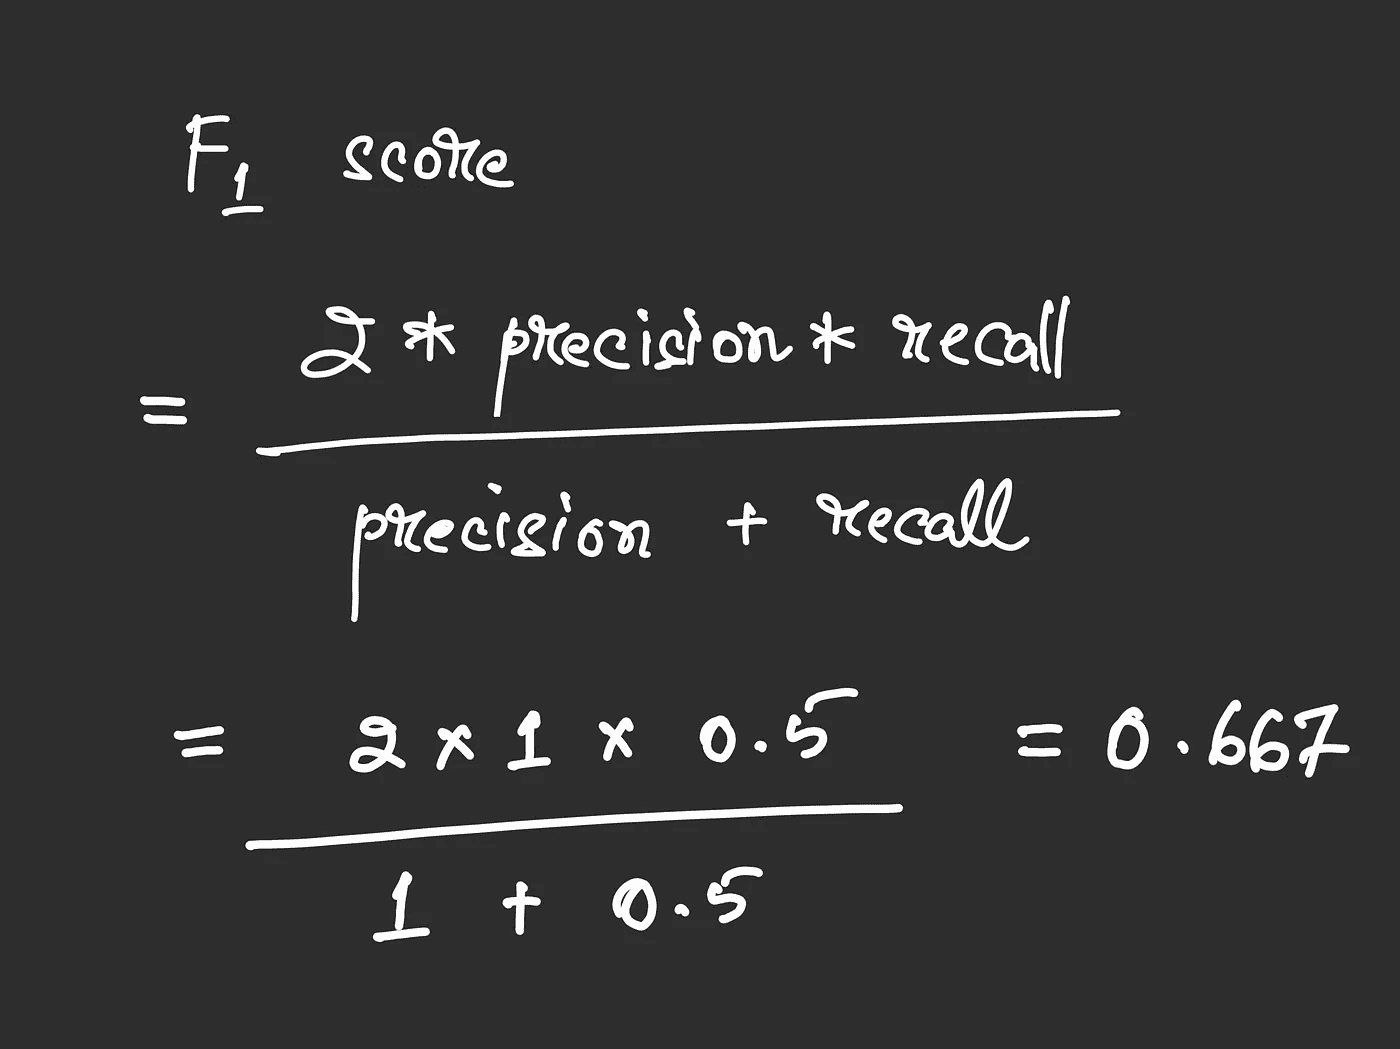 F1 score
= 2 * precision * recall
precision + recall
= 2 x 1 x 0.5 = 0.667
1 + 0.5